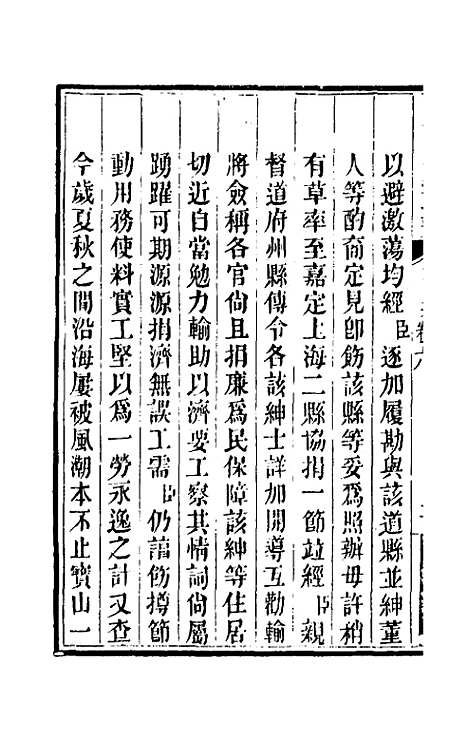 以避激蕩均經臣逐加履勘與該道縣並紳董
人等酌商定見卽飭該縣等妥爲照辦毋許稍
有草率至嘉定上海二縣協捐一節並經臣親
督道府州縣傳令各該紳士詳加開導互勸輸
將僉稱各官尙且捐廉爲民保障該紳等住居
切近自當勉力輸助以濟要工察其情詞尙屬
踴躍可期源源捐濟無誤工需臣仍諭飭撙節
動用務使料實工堅以爲一勞永逸之計又查
今歲夏秋之間沿海屢被風潮本不止寶山一